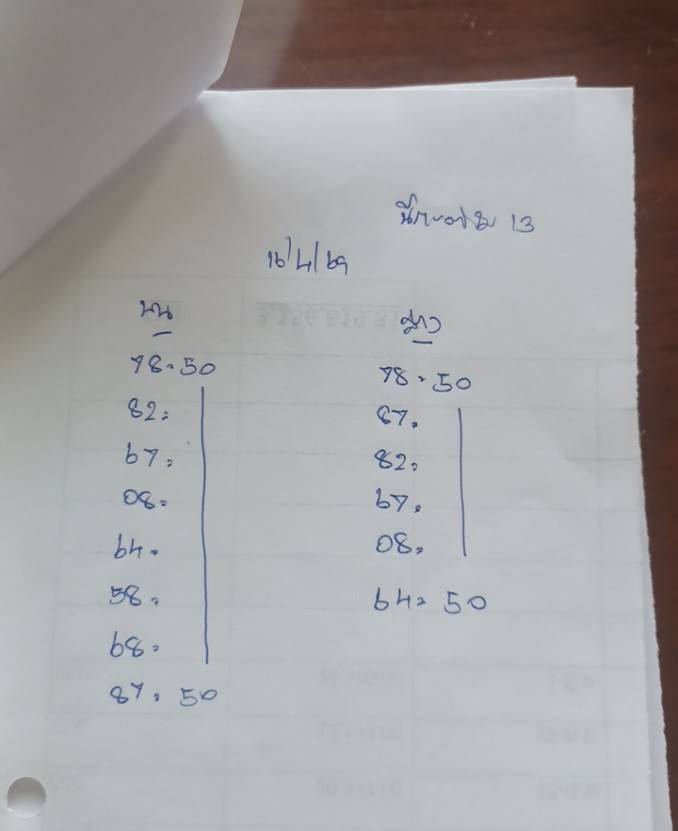 13
16/4/69
บน
78=50
82=
67=
08=
64=
58=
68=
87=50
ล่าง
78=50
87=
82=
67=
08=
64=50